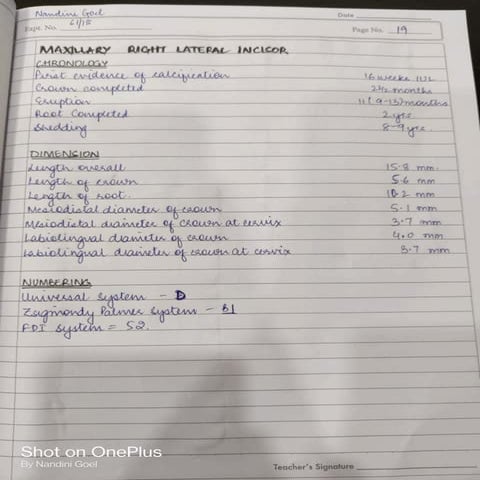 Nandini Goel
61/18
Date
Expt. No.
Page No. 19
MAXILLARY RIGHT LATERAL INCISOR
CHRONOLOGY
First evidence of calcification 16 weeks IUL
Crown completed 2½ months
Eruption 11 (9-13) months
Root Completed 2 yrs
Shedding 8-9 yrs.
DIMENSION
Length overall 15.8 mm.
Length of crown 5.6 mm
Length of root. 10.2 mm
Mesiodistal diameter of crown 5.1 mm
Mesiodistal diameter of crown at cervix 3.7 mm
Labiolingual diameter of crown 4.0 mm
Labiolingual diameter of crown at cervix 3.7 mm
NUMBERING
Universal system - D
Zsigmondy Palmer system -
FDI system = 52.
Shot on OnePlus
By Nandini Goel
Teacher's Signature